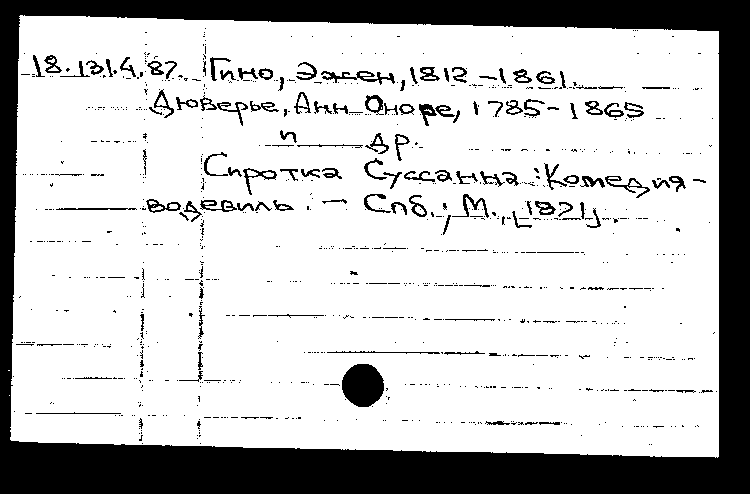 18.131.4.87. Гино, Эжен, 1812-1861.
Дюверье, Анн Оноре, 1785-1865
и др.
Сиротка Суссанна: Комедия-
водевиль. - Спб.; М., [1871].